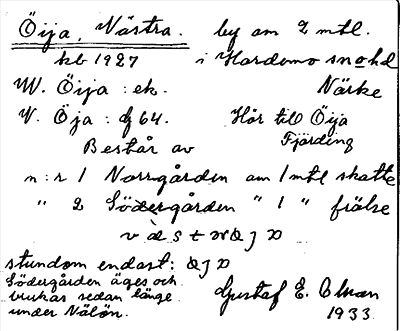 Öija, Västra. by om 2 mtl.
kb 1927 i Hardemo snohd
W. Öija : ek. Närke
V. Öja : dj 64. Hör till Öija
Fjärding
Består av
n:r 1 Norrgården om 1 mtl skatte
" 2 Södergården " 1 " frälse
stundom endast:
Södergården äges och
brukas sedan länge
under Nälön. Gustaf E. Olsson
1933.